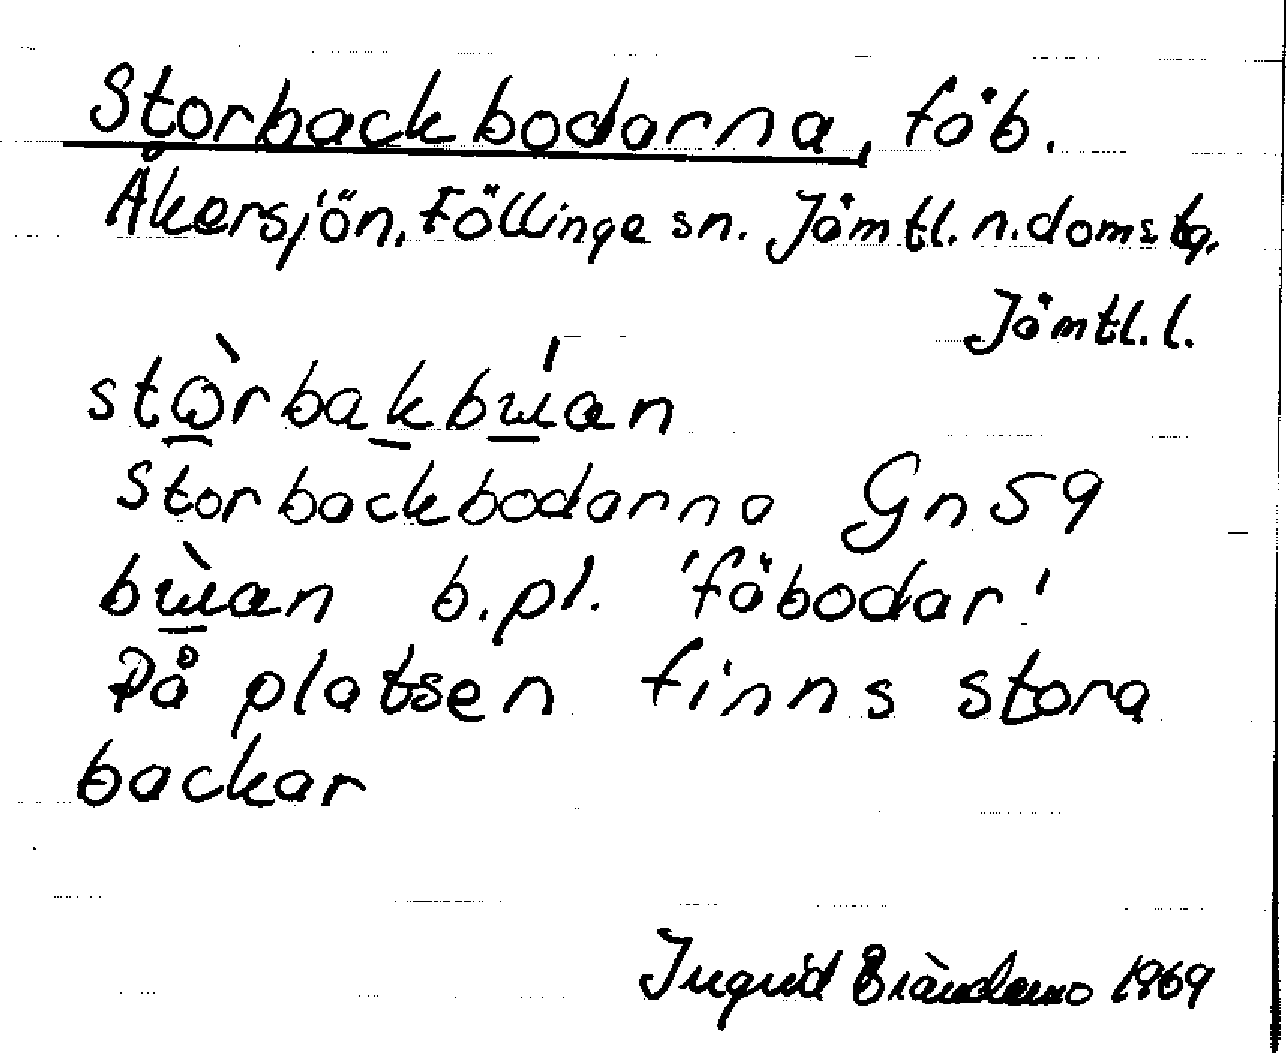 Storbackbodarna, fäb.
Åkersjön, Föllinge sn. Jämtl. n. doms tg.
Jämtl. l.
stɷ̀rbakbɯ́an
Storbackbodarna Gn 59
bɯ̀an b.pl. 'fäbodar'
På platsen finns stora
backar
Ingrid 1969